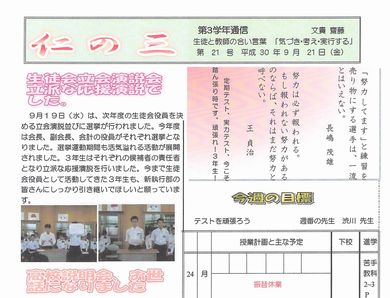 仁の三
第3学年通信
文責 齋藤
生徒と教師の合い言葉 「気づき・考え・実行する」
第 21 号 平成 30 年 9 月 21 日(金)
生徒会立会演説会
立派な応援演説で
した。
9月19日（水）は、次年度の生徒会役員を決
める立会演説並びに選挙が行われました。今年度
は会長、副会長、会計の役員がそれぞれ選挙とな
りました。選挙運動期間も活気溢れる活動が展開
されました。3年生はそれぞれの候補者の責任者
となり立派な応援演説を行いました。今まで生徒
会役員として活動してきた3年生も、新執行部の
皆さんにしっかり引き継いでほしいと願っていま
す。
「努力してます」と練習を
売り物にする選手は一流
とはいえない。
長嶋 茂雄
努力は必ず報われる。
もし報われない努力がある
のならば、それはまだ努力と
呼べない。
王 貞治
定期テスト、実力テスト、今こそ
踏ん張り時です。頑張れー3年生！
今週の目標
テストを頑張ろう
週番の先生 渋川 先生
授業計画と主な予定
下校
進学
24
月
振替休業
苦手
教科
2−3
P
高校説明会、お世
話になりました